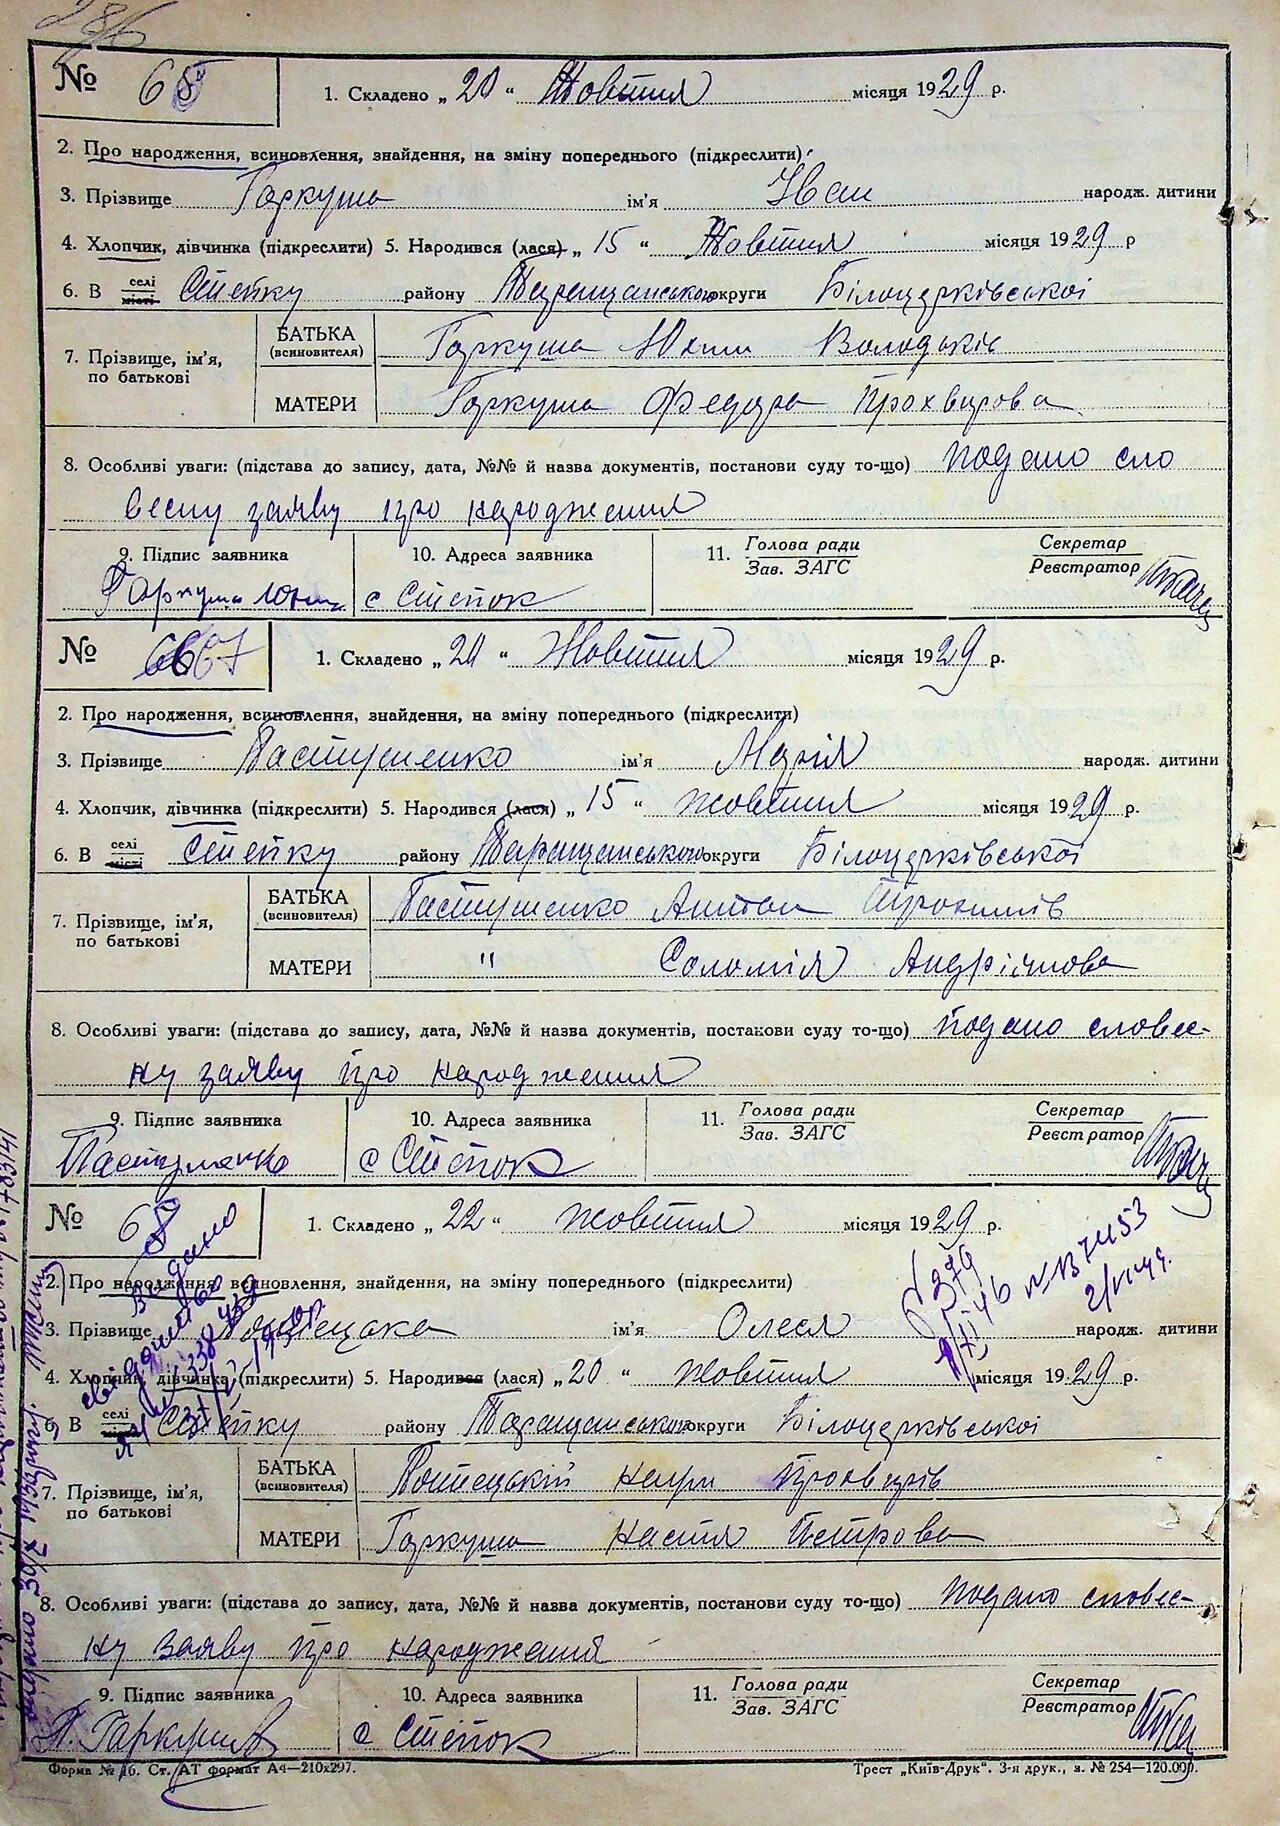 286
№ 66 1. Складено „20“ Жовтня місяця 1929 р.
2. Про народження, всиновлення, знайдення, на зміну попереднього (підкреслити)
3. Прізвище Гаркуша ім'я Іван народж. дитини
4. Хлопчик, дівчинка (підкреслити) 5. Народився (лася) „15“ Жовтня місяця 1929 р
6. В селі місті Степку району Таращанського округи Білоцерківської
7. Прізвище, ім'я, по батькові
БАТЬКА (всиновителя) Гаркуша Юхим
МАТЕРИ Гаркуша Федора Прохвирова
8. Особливі уваги: (підстава до запису, дата, №№ й назва документів, постанови суду то-що) подано сло
весну заяву про народження
9. Підпис заявника 10. Адреса заявника 11. Голова ради Зав. ЗАГС Секретар Реєстратор
Гаркуша Юхим с Степок
№ 67 1. Складено „20“ Жовтня місяця 1929 р.
2. Про народження, всиновлення, знайдення, на зміну попереднього (підкреслити)
3. Прізвище Пастушенко ім'я Марія народж. дитини
4. Хлопчик, дівчинка (підкреслити) 5. Народився (лася) „15“ жовтня місяця 1929 р.
6. В селі місті Степку району Таращанського округи Білоцерківської
7. Прізвище, ім'я, по батькові
БАТЬКА (всиновителя) Пастушенко Антон Трохимів
МАТЕРИ " Соломія Андріянова
8. Особливі уваги: (підстава до запису, дата, №№ й назва документів, постанови суду то-що) подано словес-
ну заяву про народження
9. Підпис заявника 10. Адреса заявника 11. Голова ради Зав. ЗАГС Секретар Реєстратор
Пастушенко с Степок
№ 68 1. Складено „22“ жовтня місяця 1929 р.
2. Про народження, всиновлення, знайдення, на зміну попереднього (підкреслити)
3. Прізвище ім'я Олеся народж. дитини
4. Хлопчик, дівчинка (підкреслити) 5. Народився (лася) „20“ жовтня місяця 1929 р.
6. В селі місті Степку району Таращанського округи Білоцерківської
7. Прізвище, ім'я, по батькові
БАТЬКА (всиновителя) Прохвирів
МАТЕРИ Гаркуша Настя Петрова
8. Особливі уваги: (підстава до запису, дата, №№ й назва документів, постанови суду то-що) подано словес-
ну заяву про народження
9. Підпис заявника 10. Адреса заявника 11. Голова ради Зав. ЗАГС Секретар Реєстратор
с Степок
Видано
свідоцтво
Форма № 16. Ст. АТ формат А4—210х297. Трест „Київ-Друк“. 3-я друк., з. № 254—120.000.